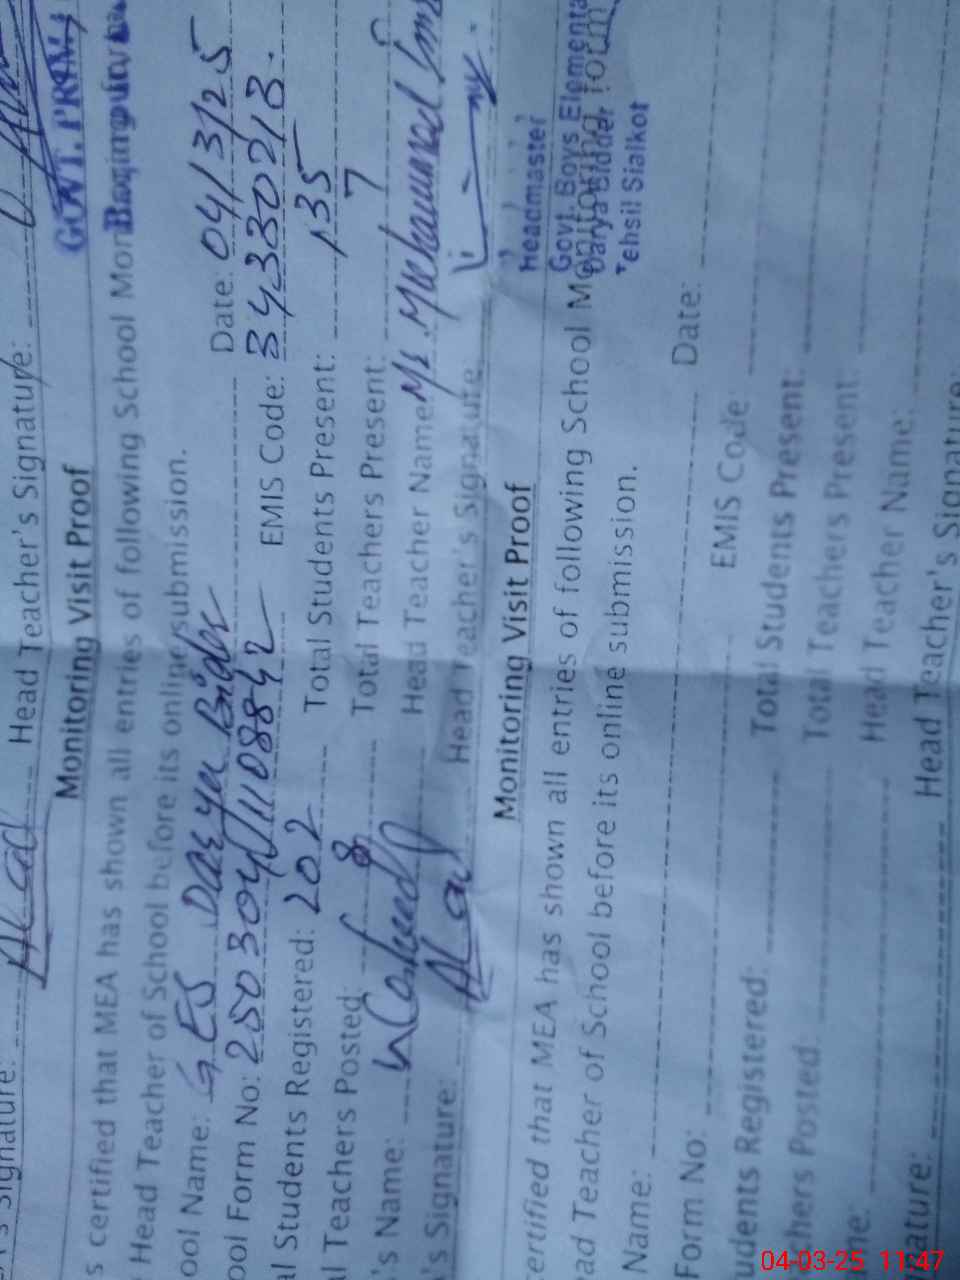 Signature: Head Teacher's Signature:
GOVT. PRIM
Monitoring Visit Proof
s certified that MEA has shown all entries of following School Mon
Head Teacher of School before its online submission.
ool Name: G.E.S Darya Bidder Date: 04/3/25
ool Form No: 250304/1108842 EMIS Code: 34330213
al Students Registered: 202 Total Students Present: 135
l Teachers Posted: 8 Total Teachers Present: 7
s Name: Head Teacher Name: Mr. Muhammad
's Signature: Head Teacher's Signature:
Headmaster
Govt. Boys Elementa
Darya Bidder
Tehsil Sialkot
Monitoring Visit Proof
ertified that MEA has shown all entries of following School Monitoring form
ad Teacher of School before its online submission.
Name: Date:
Form No: EMIS Code:
udents Registered: Total Students Present:
chers Posted: Total Teachers Present:
me: Head Teacher Name:
nature: Head Teacher's Signature:
04-03-25 11:47